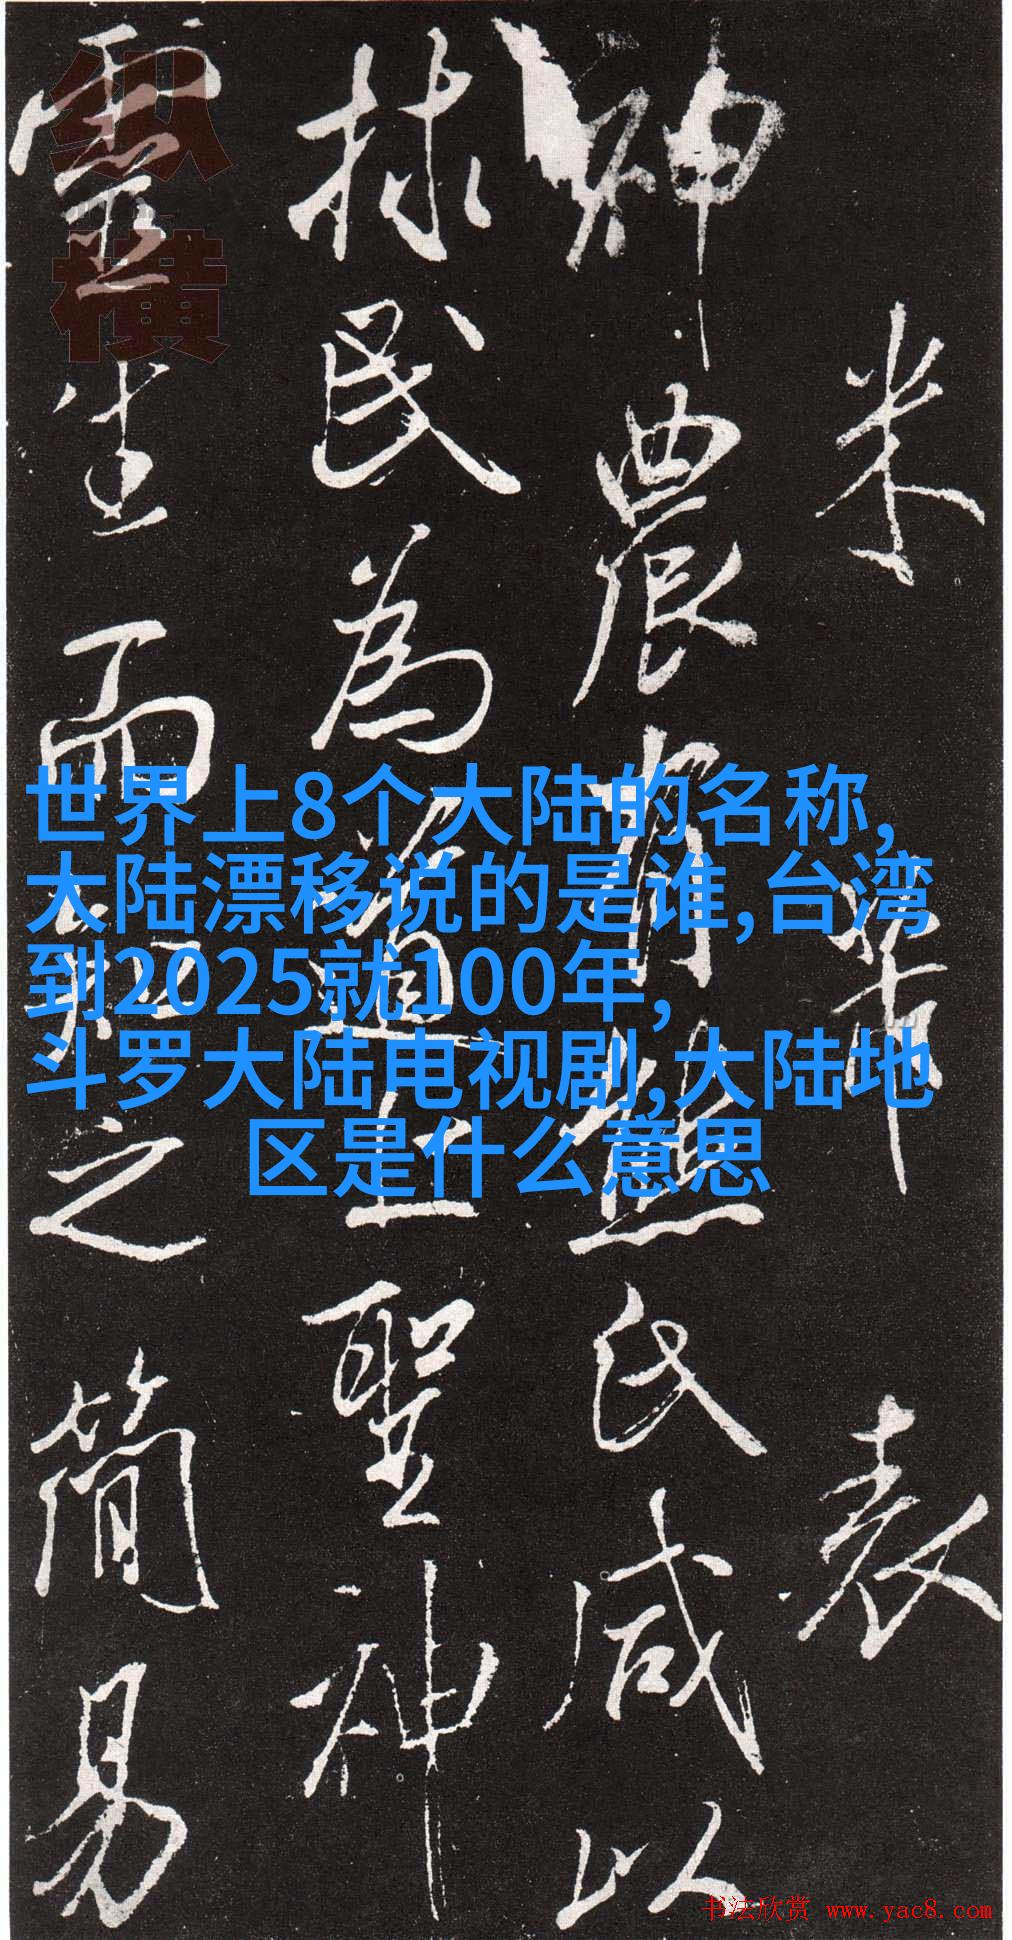 米芾表
神農有熊氏咸以
捄民為道上聖神
靈生而知之簡易
纵横
世界上8个大陆的名称,
大陆漂移说的是谁,台湾
到2025就100年,
斗罗大陆电视剧,大陆地
区是什么意思
书法欣赏 www.yac8.com